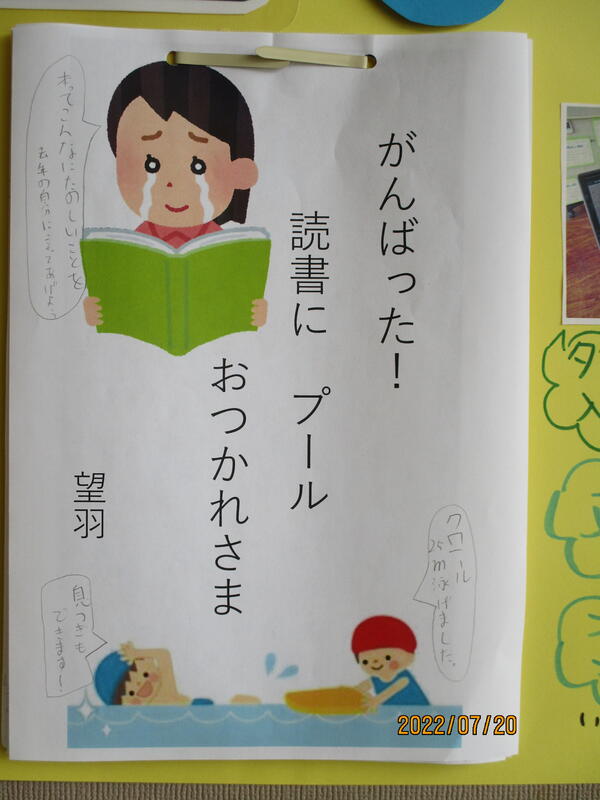 がんばった！
読書に　プール
おつかれさま
望羽
本ってこんなにたのしいことを
去年の自分に言ってあげよう。
クロール
25m泳げました。
息つぎも
できます！
2022/07/20